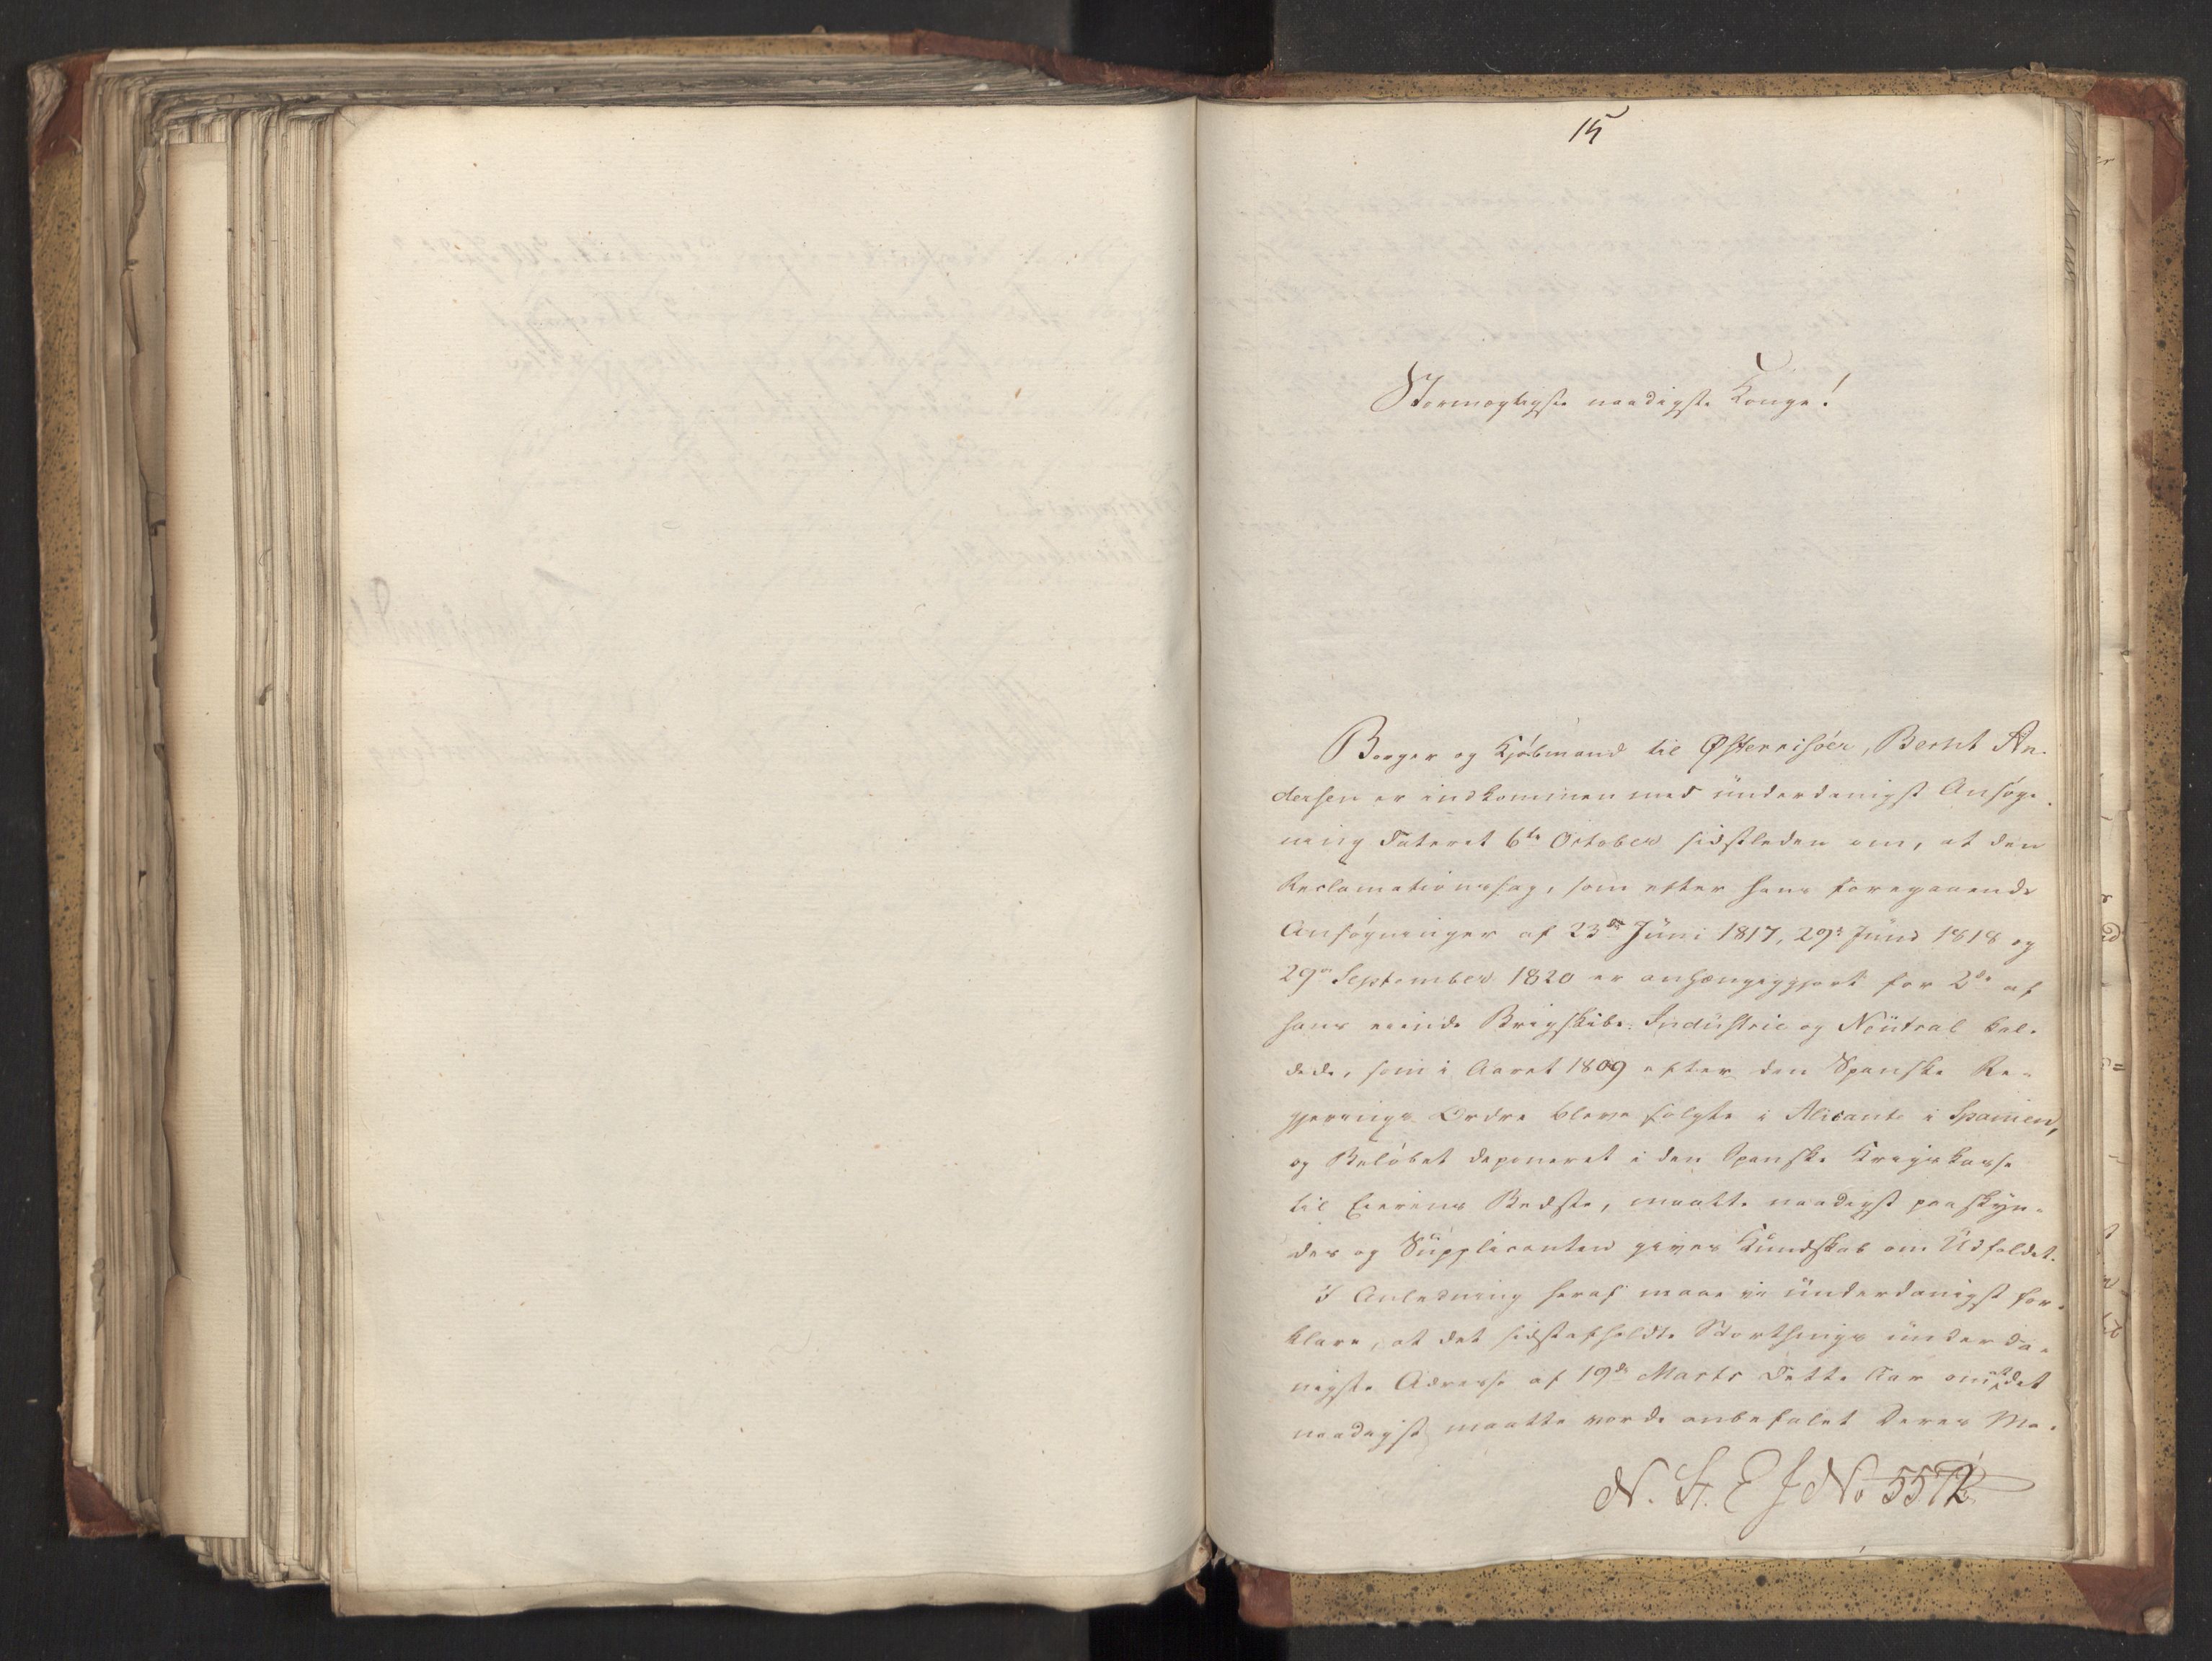 15
Stormægtigste naadigste Konge!
Borger og Kjøbmand til Østerrisöer, Bernt An-
dersen er indkommen med underdanigst Ansøg-
ning dateret 6te October sidstleden om, at den
Reclamationssag, som efter hans foregaaende
Ansøgninger af 23de Juni 1817, 29de Juni 1818 og
29de September 1820 er anhængiggjort for 2de af
hans eiende Brigskibe, Industrie og Neutral kal-
dede, som i Aaret 1809 efter den Spanske Re-
gjerings Ordre bleve solgte i Alicante i Spanien,
og Beløbet deponeret i den Spanske Krigskasse
til Eierens Bedste, maatte naadigst paaskyn-
des og Supplicanten gives Kundskab om Udfaldet.
I Anledning heraf maae vi underdanigst for-
klare, at det sidstafholdte Storthings underda-
nigste Adresse af 19de Marts dette Aar om at det
naadigst maatte vorde anbefalet Deres Ma-
N. St. E J No 5572